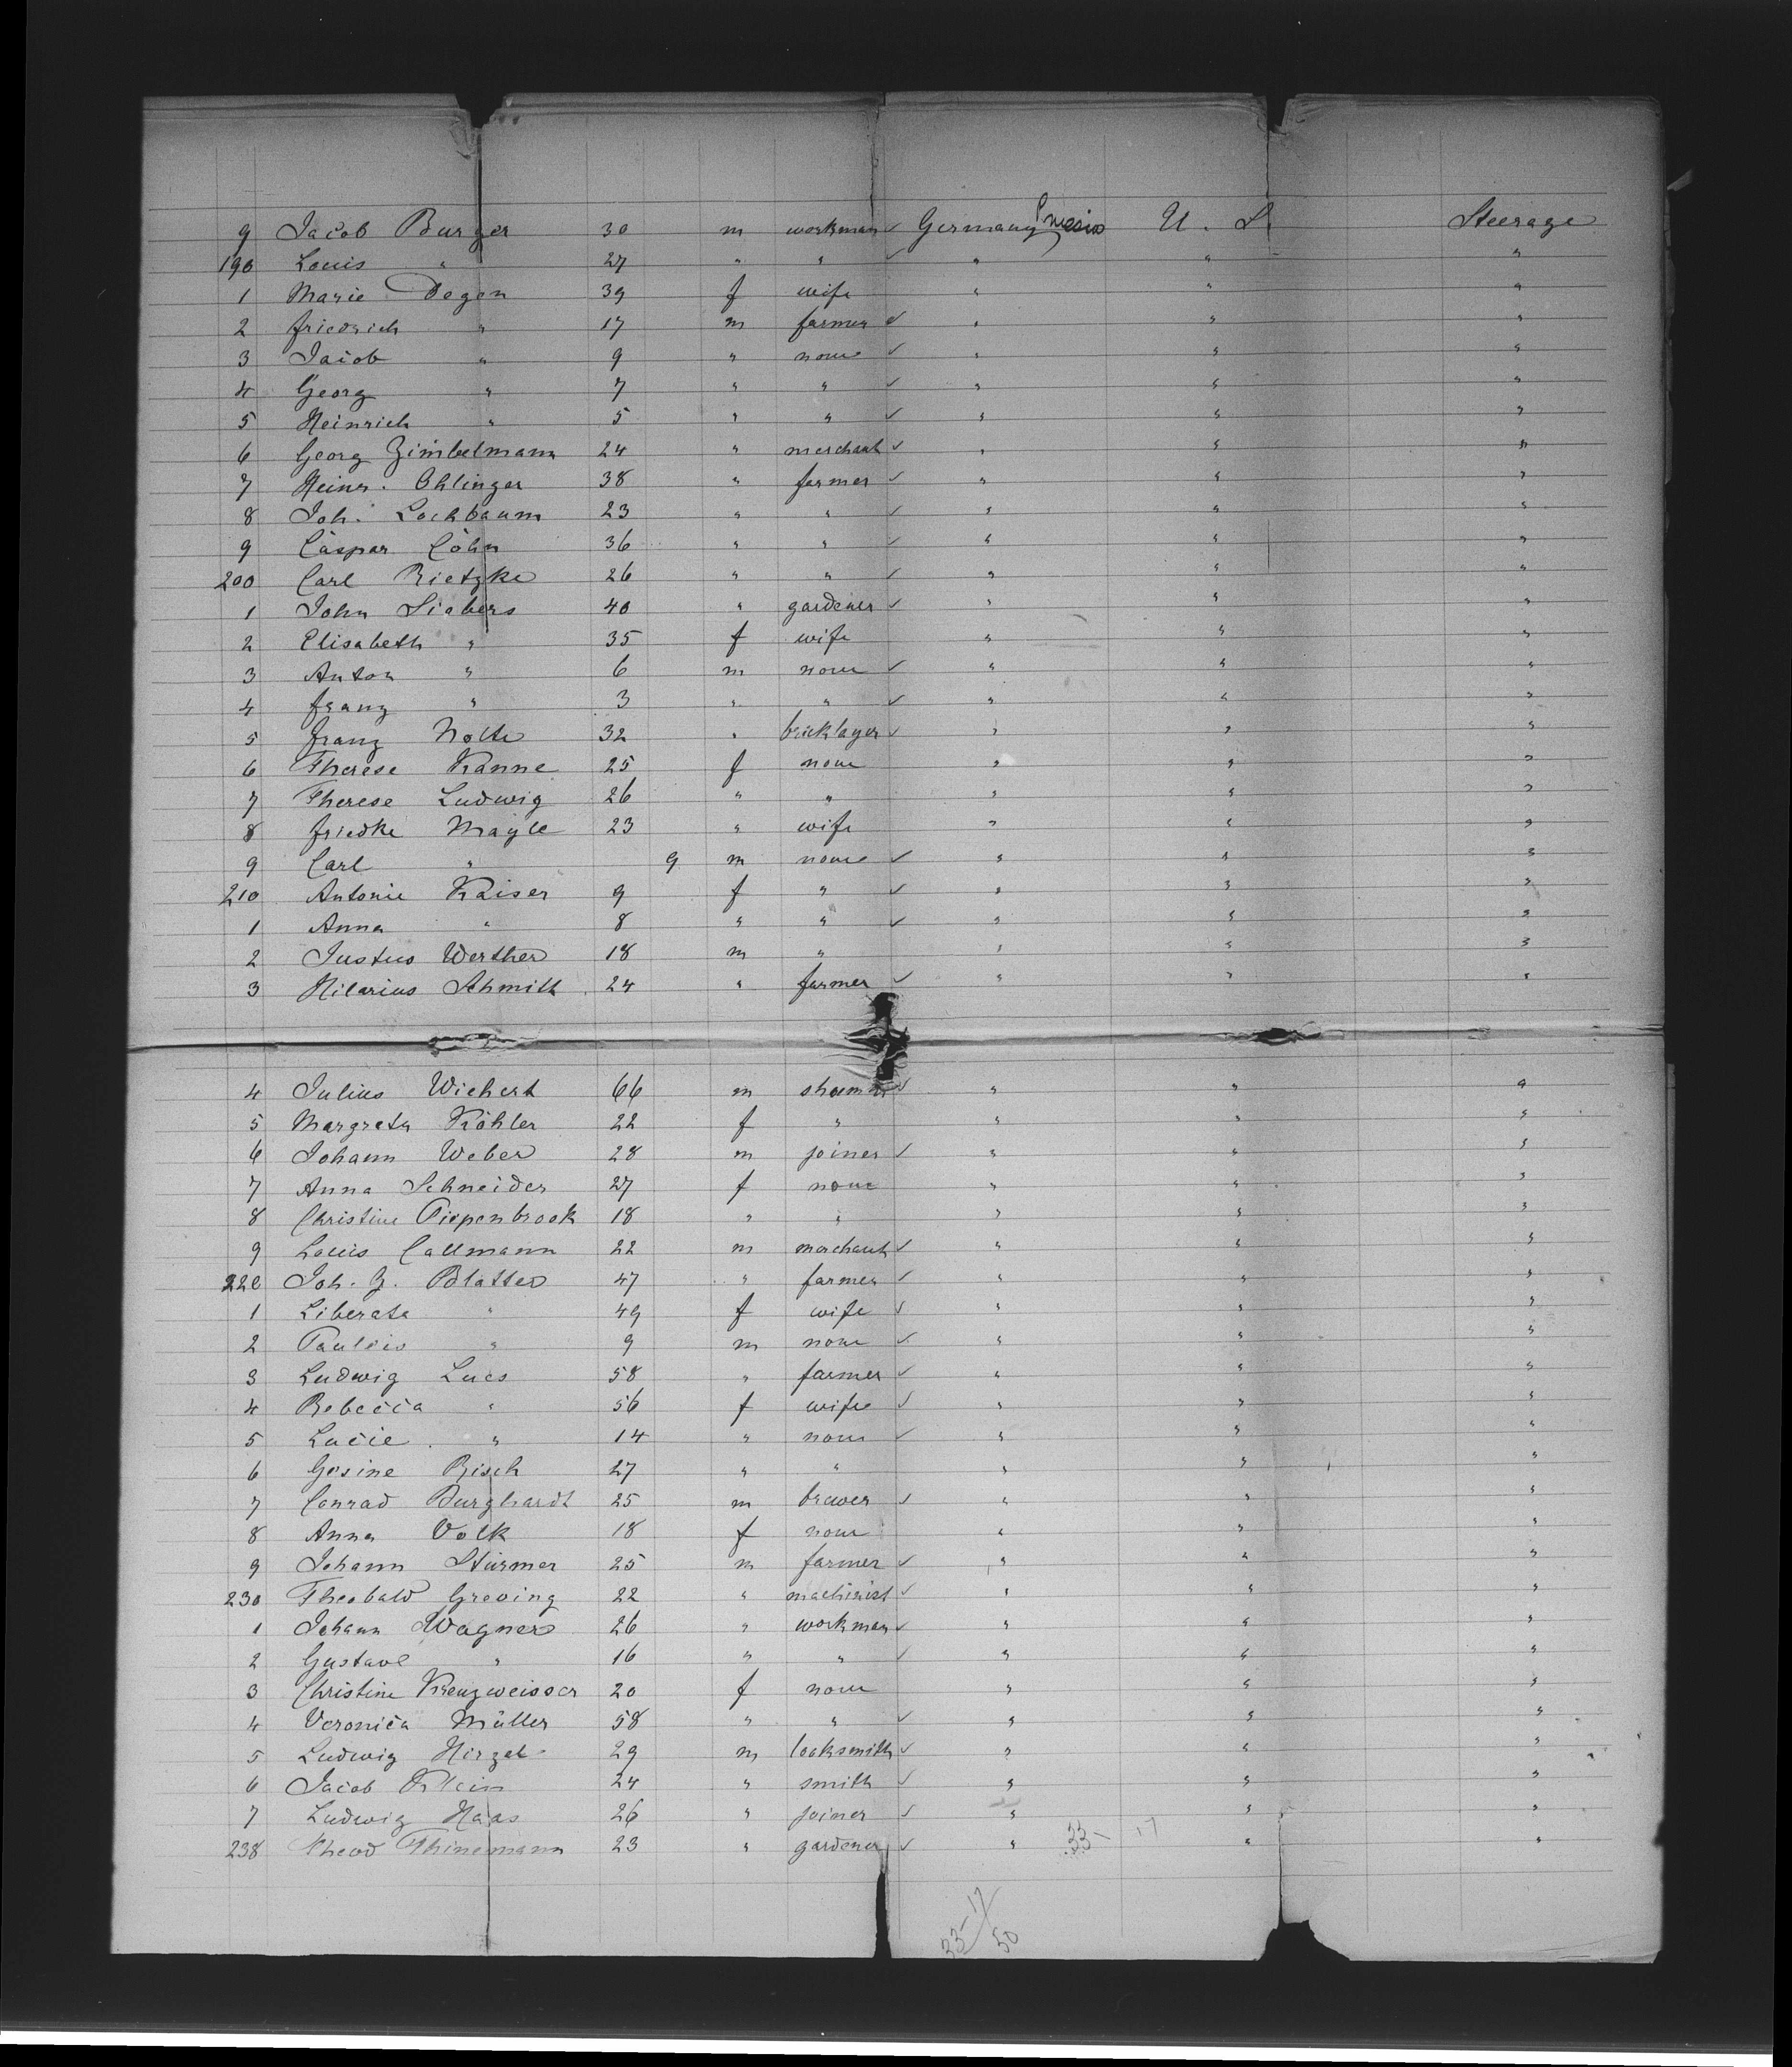 9 Jacob Burger 30 m workman ✓ Germany Prussia U. S. Steerage
190 Louis " 27 " " ✓ " " "
1 Marie Degen 39 f wife " " "
2 Friedrich " 17 m farmer ✓ " " "
3 Jacob " 9 " none ✓ " " "
4 Georg " 7 " " ✓ " " "
5 Heinrich " 5 " " ✓ " " "
6 Georg Zimbelmann 24 " merchant ✓ " " "
7 Heinr. Ohlinger 38 " farmer ✓ " " "
8 Joh. Lochbaum 23 " " ✓ " " "
9 Caspar Cöhn 36 " " ✓ " " "
200 Carl Rietzke 26 " " ✓ " " "
1 John Siebers 40 " gardener ✓ " " "
2 Elisabeth " 35 f wife " " "
3 Anton " 6 m none ✓ " " "
4 Franz " 3 " " ✓ " " "
5 Franz Nolte 32 " bricklayer ✓ " " "
6 Therese Kanne 25 f none " " "
7 Therese Ludwig 26 " " " " "
8 Friedke Mayle 23 " wife " " "
9 Carl " 9 m none ✓ " " "
210 Antonie Kaiser 9 f " ✓ " " "
1 Anna " 8 " " ✓ " " "
2 Justus Werther 18 m " " " "
3 Hilarius Schmitt 24 " farmer ✓ " " "
4 Julius Wichert 66 m ✓ " " "
5 Margreta Köhler 22 f " " " "
6 Johann Weber 28 m joiner ✓ " " "
7 Anna Schneider 27 f none " " "
8 Christine Piepenbrook 18 " " " " "
9 Louis Callmann 22 m merchant ✓ " " "
220 Joh. G. Blatter 47 " farmer ✓ " " "
1 Liberata " 49 f wife ✓ " " "
2 " 9 m none ✓ " " "
3 Ludwig Lues 58 " farmer ✓ " " "
4 Rebecca " 56 f wife ✓ " " "
5 Lucie " 14 " none ✓ " " "
6 Gesine Risch 27 " " " " "
7 Conrad Burghardt 25 m brewer ✓ " " "
8 Anna Volk 18 f none " " "
9 Johann Stürmer 25 m farmer ✓ " " "
230 Theobald Greving 22 " machinist ✓ " " "
1 Johann Wagner 26 " workman ✓ " " "
2 Gustave " 16 " " ✓ " " "
3 Christine Kreuzweisser 20 f none " " "
4 Veronica Müller 58 " " ✓ " " "
5 Ludwig Hirzel 29 m locksmith ✓ " " "
6 Jacob Klein 24 " smith ✓ " " "
7 Ludwig Haas 26 " joiner ✓ " " "
238 Theod Thinemann 23 " gardener ✓ " 33- 17 " "
33-17/50